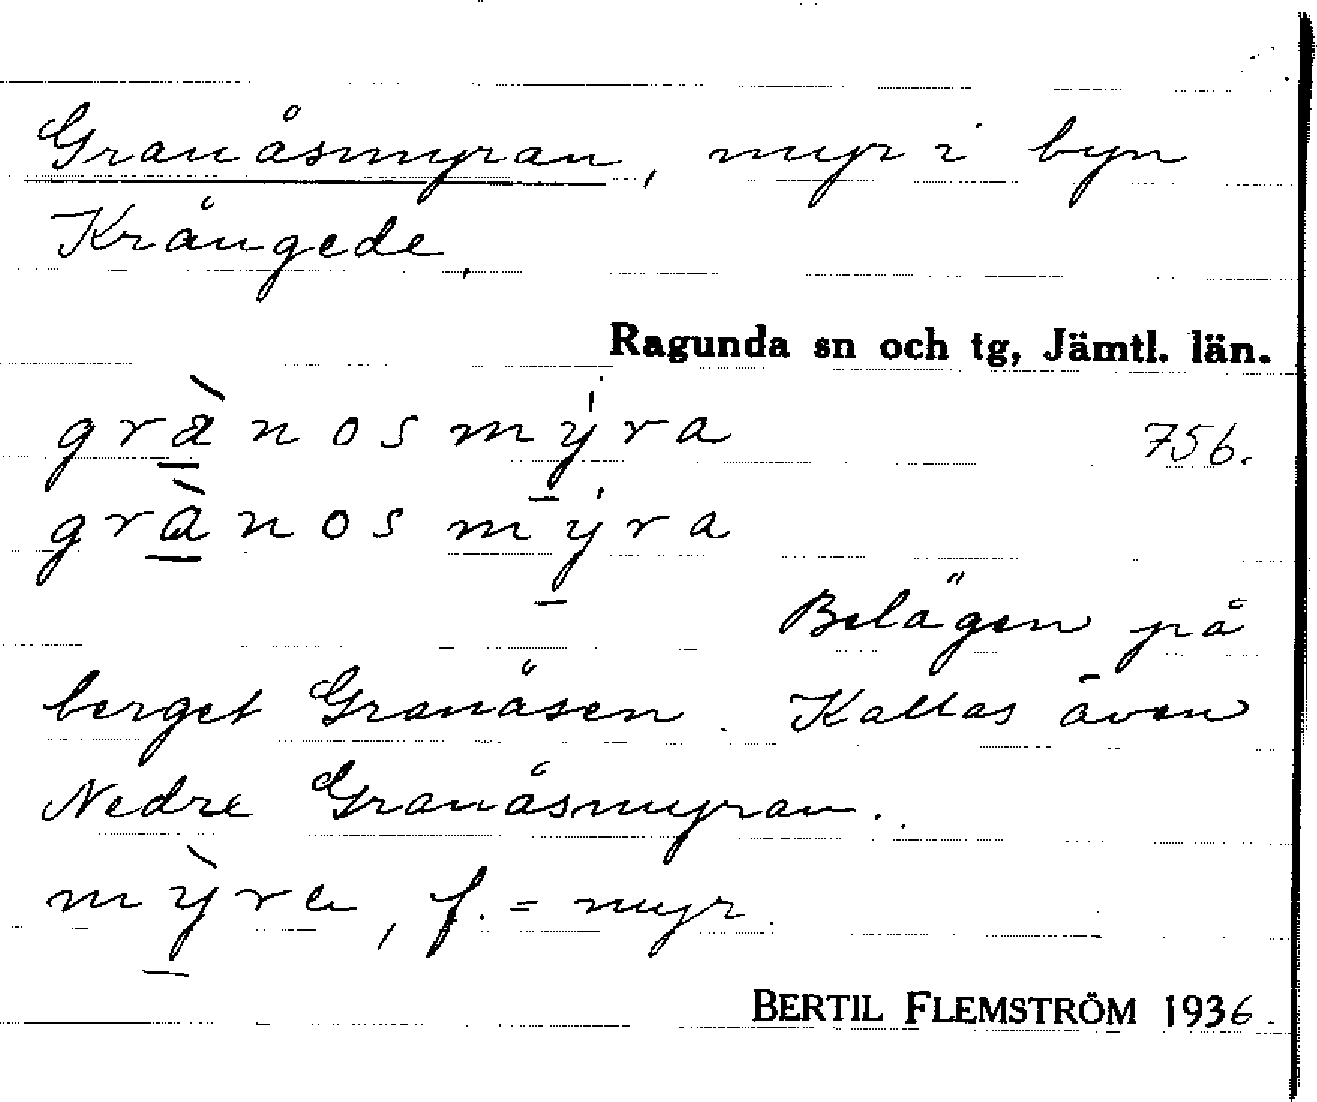 Granåsmyran, myr i byn
Krångede,
Ragunda sn och tg, Jämtl. län.
grà̱nosmý̱ra 756.
grà̱nosmý̱ra
Belägen på
berget Granåsen. Kallas även
Nedre Granåsmyran.
mỳ̱ra, f. = myr.
BERTIL FLEMSTRÖM 1936.